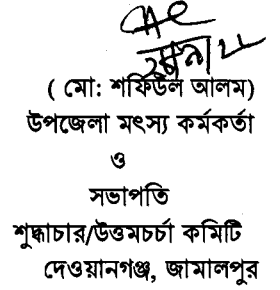 ( মো: শফিউল আলম)
উপজেলা মৎস্য কর্মকর্তা
ও
সভাপতি
শুদ্ধাচার/উত্তমচর্চা কমিটি
দেওয়ানগঞ্জ, জামালপুর